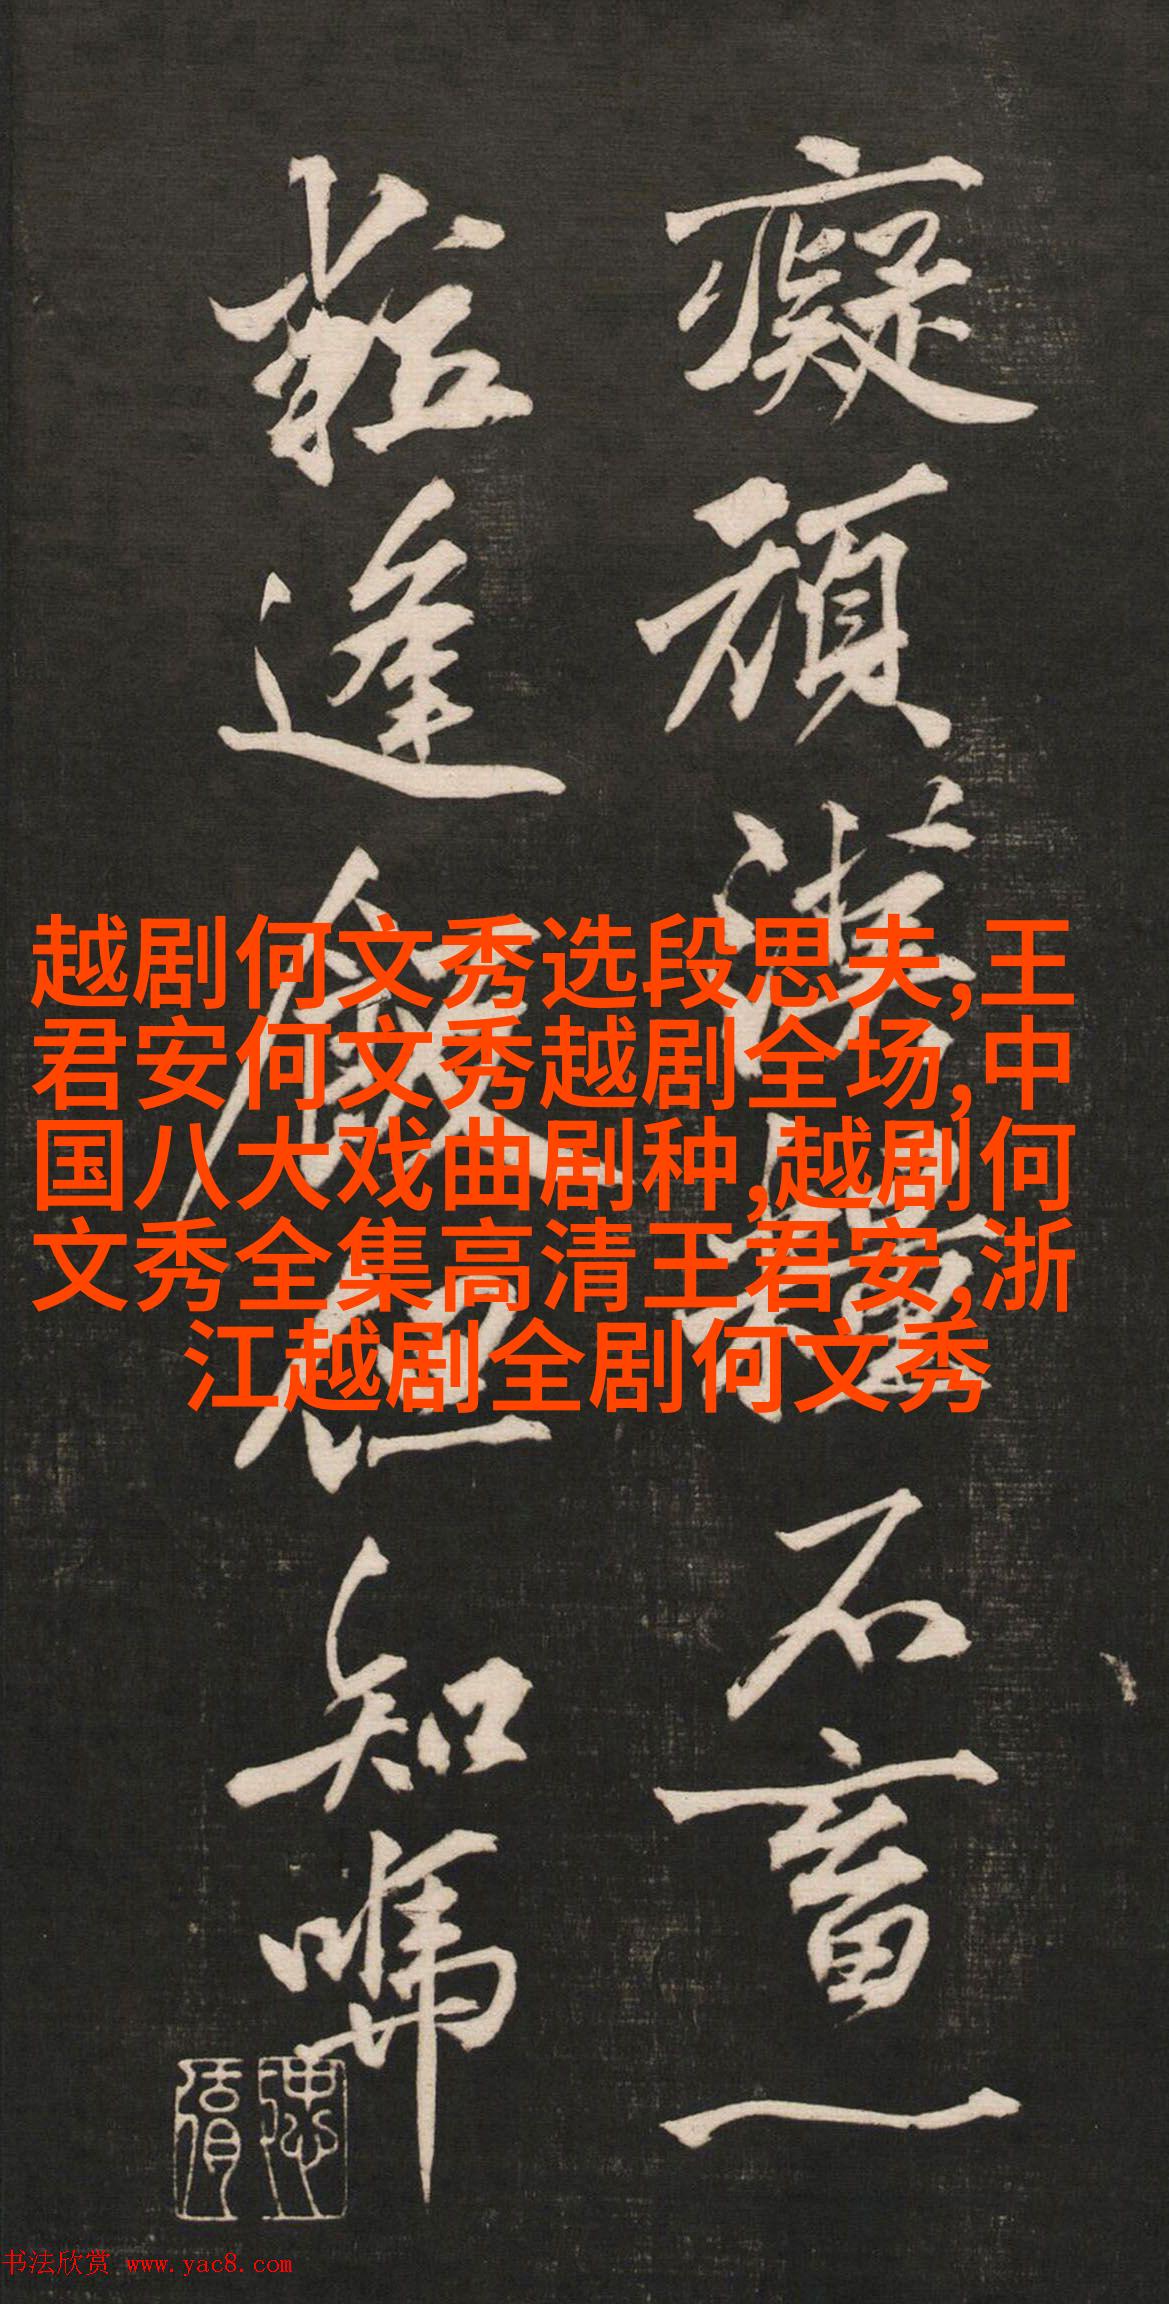 癡頑石畜一
逢知
越剧何文秀选段思夫,王
君安何文秀越剧全场,中
国八大戏曲剧种,越剧何
文秀全集高清王君安,浙
江越剧全剧何文秀
书法欣赏 www.yac8.com